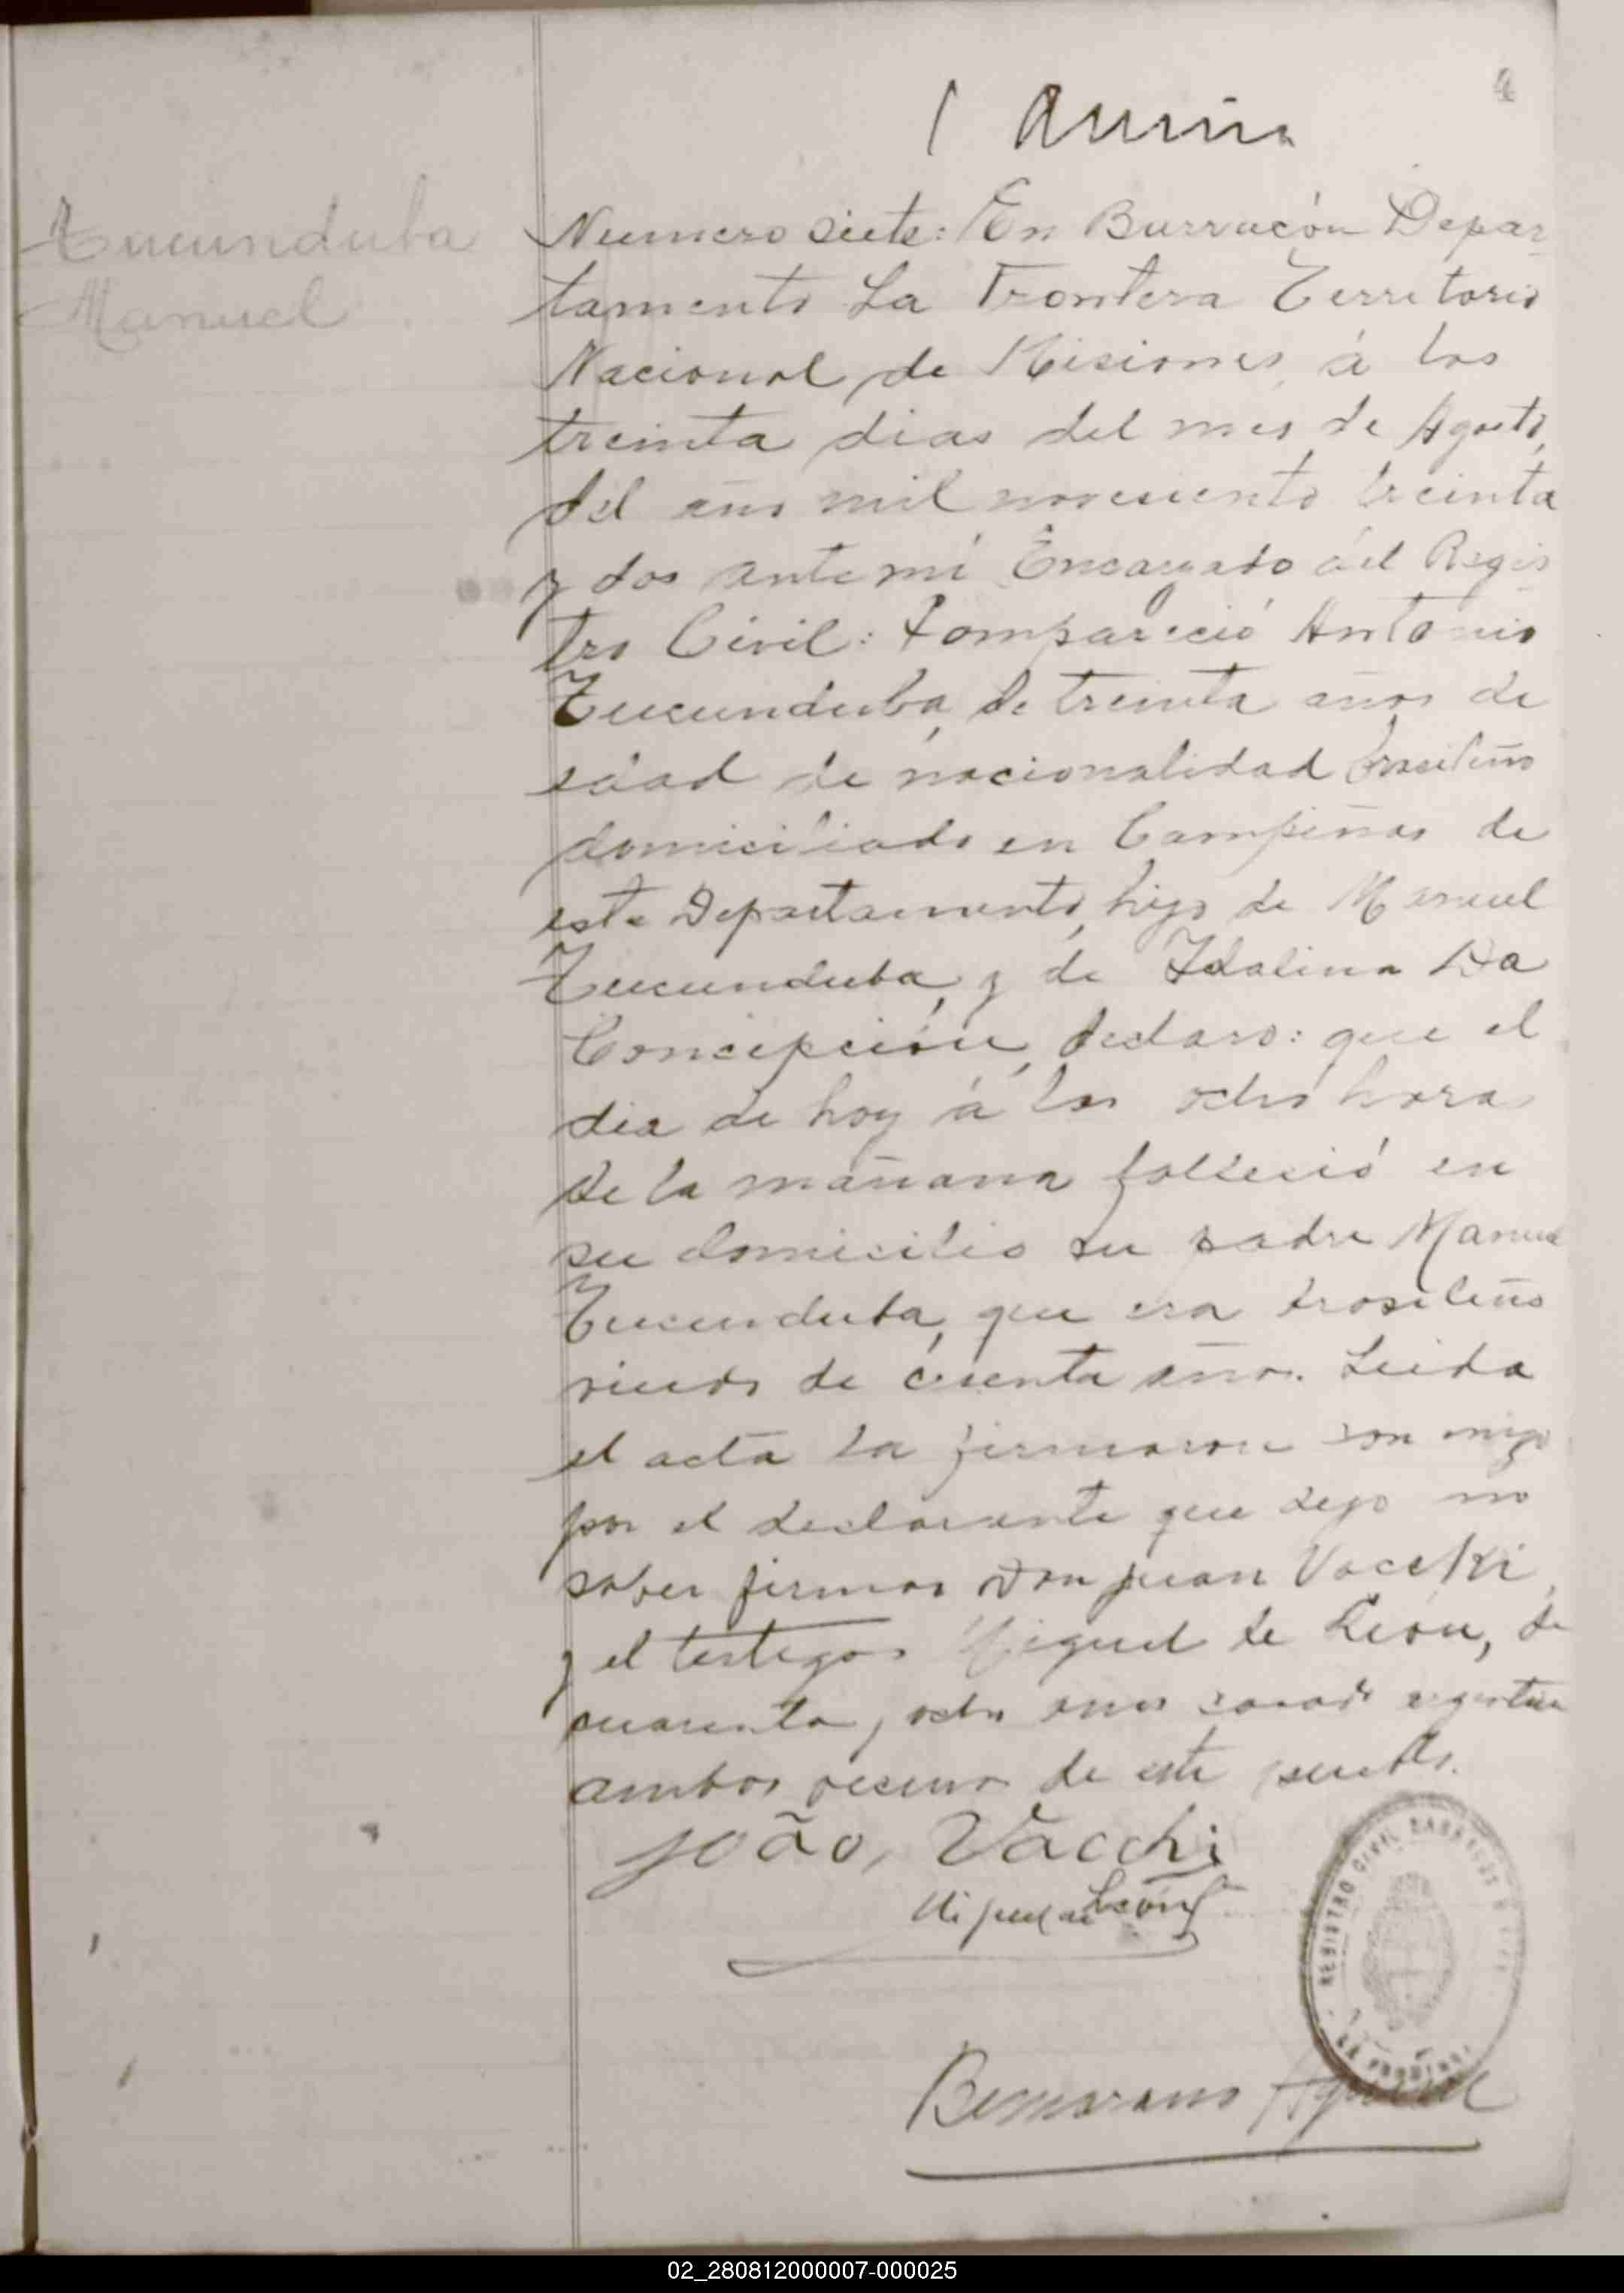 4
Tucunduba
Manuel
Numero siete: En Barracón Depar
tamento La Frontera Territorio
Nacional de Misiones, á los
treinta dias del mes de Agosto,
del año mil noveciento treinta
y dos ante mi Encargado del Regis
tro Civil: Compareció Antonio
Tucunduba, de treinta años de
edad de nacionalidad brasileño
domiciliado en Campiñas de
este Departamento, hijo de Manuel
Tucunduba, y de Idalina Da
Concepción, declaro: que el
dia de hoy á las ocho hora
de la mañana falleció en
su domicilio su padre Manuel
Tucunduba, que era brasileño
viudo de años. Leida
el acta la firmaron con migo
por el declarante que dejo no
saber firmar Don Juan Vacchi,
y el testigos Miguel de León, de
cuarenta y ocho años casado argentino
ambos vecinos de este pueblo.
João, Vacchi
Miguel de León
REGISTRO CIVIL BARRACON
LA FRONTERA